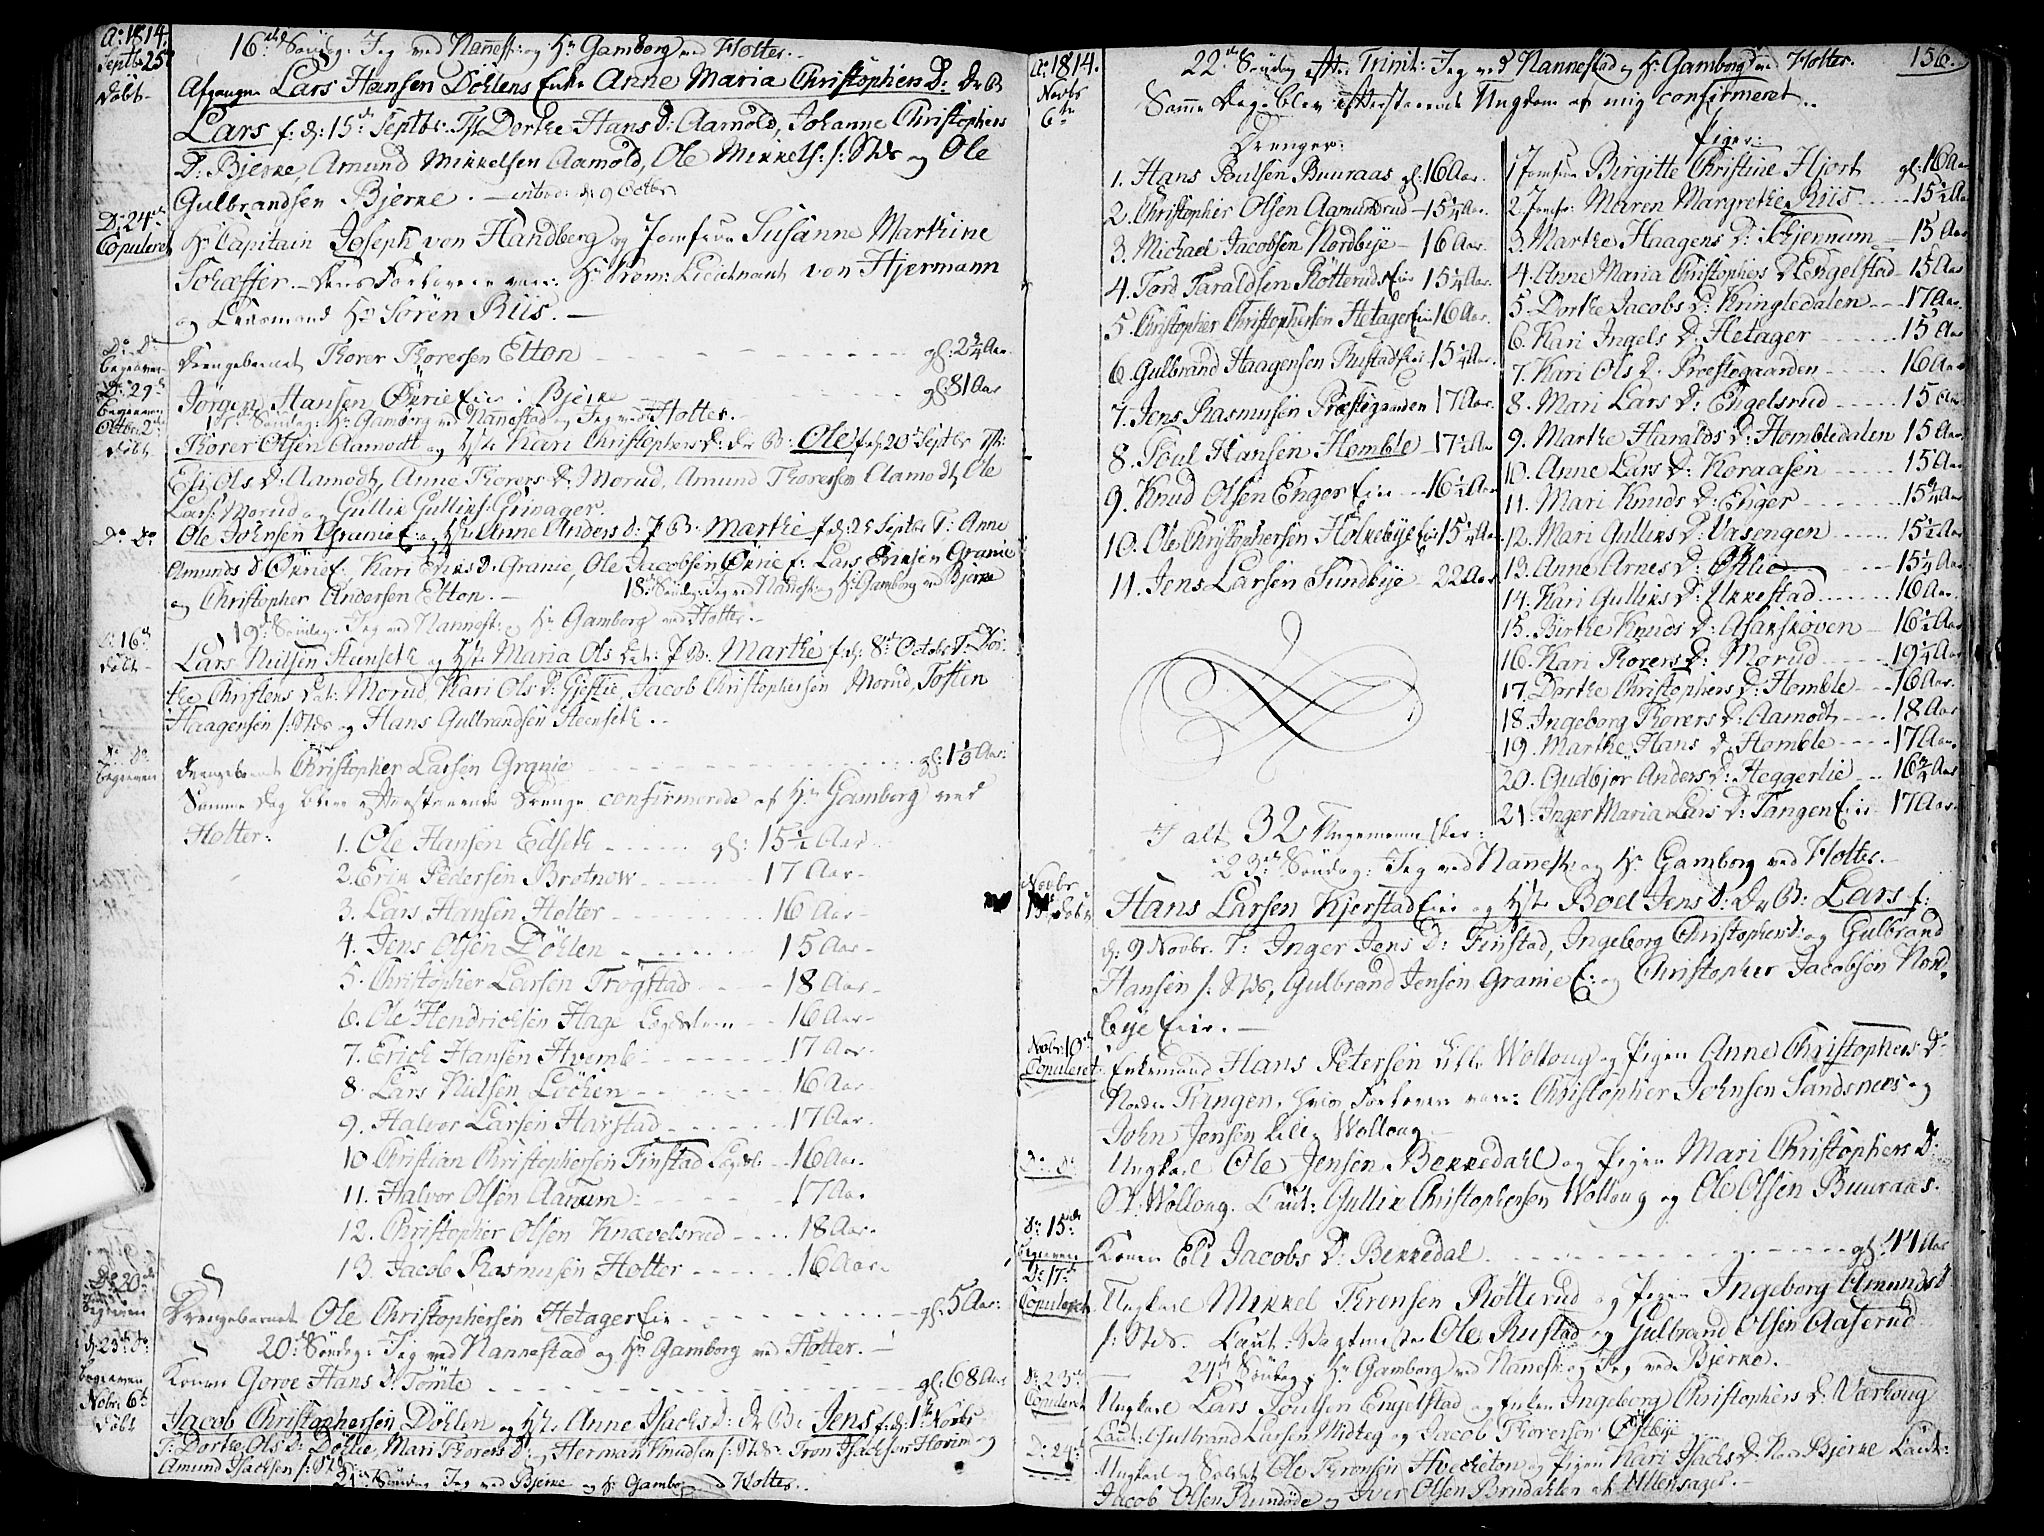 Ao 1814.
Septb 25
Döbt
16de Söndag: Jeg ved Nannest: og Hr Gamborg ved Holter.
Afgangne Lars Hansen Döhlens Enke Anne Maria Christophers D: Dr B
Lars f: d: 15de Septbr. T: Dorthe Hans D: Aamold, Johanne Christophers
D: Bjerke, Amund Mikkelsen Aamold, Ole Mikkels: s: Stds og Ole
Gulbrandsen Bjerke. introd: d: 9 Octbr
D: 24de
Copuleret
Hr Capitain Joseph von Handberg og Jomfrue Susanne Marthine
Schæffer. Deres Forlovere var: Hr Prem: Lieutnant von Hjermann
og Lensmand Hr Sören Riis.
Do Do
begraven
Drengebarnet Thorer Thoresen Elton gl: 2 3/4 Aar
D: 29de
begraven
Jörgen Hansen ØkrieEie i Bjerke gl: 81 Aar
Octbr. 2de
Döbt
17de Söndag: Hr Gamborg ved Nannestad og Jeg ved Holter.
Thorer Olsen Aamodt og Hst: Kari Christophers D: Dr B: Ole f: d: 20de Septbr T:
Eli Ols D: Aamodt, Anne Thorers D: Morud, Amund Thoresen Aamodt, Ole
Lars: Morud og Gullik Gulliks: Grinager.
Do Do
Ole Johnsen GranieE: og Hst: Anne Anders D: P B: Marthe f: d: 25 Septbr T: Anne
Amunds D ØkrieE, Kari Eriks D: Granie, Ole Jacobsen ØkrieE: Lars Eriksen Granie
og Christopher Andersen Elton.
18de Söndag: Jeg ved Nannest: og Hr Gamborg ved Bjerke
19de Söndag: Jeg ved Nannest: og Hr Gamborg ved Holter.
D: 16de
Döbt
Lars Nielsen Steenseth og Hst: Maria Ols Dat: P B: Marthe f: d: 8de Octobr T: Dor-
the Christens Dat: Morud, Kari Ols D: Gjestie, Jacob Christophersen Morud, Tosten
Haagensen s: Stds og Hans Gulbrandsen Steenseth.
Do Do
begraven
Drengebarnet Christopher Larsen Granie gl: 1 1/3 Aar:
Samme Dag bleve efterstaaende Drenge confirmerede af Hr Gamborg ved
Holter:
1. Ole Hansen Eidseth gl: 15 1/2 Aar
2. Erik Pedersen Brotnow 17 Aar
3. Lars Hansen Holter 16 Aar
4. Jens Olsen Döhlen 15 Aar
5. Christopher Larsen Trögstad 18 Aar
6. Ole Hendrichsen Hage Lægdslem 16 Aar
7. Erich Hansen Hvemb 17 Aar
8. Lars Nielsen Löchen 16 Aar
9. Halvor Larsen Harstad 17 Aar
10. Christian Christophersen Finstad Lægdsl: 16 Aar
11. Halvor Olsen Aanum 17 Aar
12. Christopher Olsen Knævelsrud 18 Aar
13. Jacob Rasmusen Holter 16 Aar
D: 20de
begraven
Drengebarnet Ole Christophersen HetagerEie gl: 5 Aar:
20de Söndag: Jeg ved Nannestad og Hr Gamborg ved Holter.
d: 23de
begraven
Konen Goroe Hans D: Tömte gl: 68 Aar
Novbr: 6te
Döbt
Jacob Christophersen Döhlen og Hst: Anne Isachs D: Dr B: Jens f: d: 1ste Novbr
T: Dorthe Ols D: Döhlie, Mari Thorers D: og Herman Knudsen s: Stds Tron Isachsen Horin og
Amund Isachsen s: Stds
21de Söndag Jeg ved Bjerke og Hr Gamborg ved Holter.
Ao 1814.
Novbr
6te
22de Söndag efter Trinit: Jeg ved Nannestad og Hr Gamborg ved Holter.
156.
Samme Dag blev efterstaaende Ungdom af mig confirmeret.
Drenger:
1. Hans Poulsen Buuraas gl: 16 Aar.
2. Christopher Olsen Aamundrud 15 1/4 Aar.
3. Michael Jacobsen Nordbye 16 Aar.
4. Tord Taraldsen RötterudsEie 15 1/4 Aar.
5. Christopher Christophersen HetagerEie 16 Aar.
6. Gulbrand Haagensen RustadEie 15 1/4 Aar.
7. Jens Rasmusen Præstegaarden 17 Aar.
8. Poul Hansen Homble 17 1/2 Aar
9. Knud Olsen EngerEie 16 1/2 Aar
10. Ole Christophersen HolkebyeEie 15 1/4 Aar
11. Jens Larsen Sundbye 22 Aar
Piger:
1 Jomfrue Birgitte Christine Hjort gl: 16 Aar
2. Jomfr: Maren Margrethe Riis 15 1/2 Aar
3. Marthe Haagens D: Schjernum 15 Aar
4. Anne Maria Christophers D Engelstad 15 Aar
5. Dorthe Jacobs D: Kringledalen 17 Aar.
6. Kari Ingels D: Hetager 15 Aar.
7. Kari Ols D: Præstegaarden 16 Aar
8. Mari Lars D: Engelsrud 15 Aar
9. Marthe Haralds D: Hombledalen 15 Aar.
10. Anne Lars D: Koraasen 15 Aar
11. Mari Knuds D: Enger 15 3/4 Aar
12. Mari Gulliks D: Vasengen 15 1/2 Aar
13. Anne Arnes D: Østlie 15 1/4 Aar
14. Kari Gulliks D: Ukkestad 16 Aar.
15. Birthe Knuds D: Asakskoven 16 1/2 Aar
16. Kari Thorers D: Morud 19 1/4 Aar
17. Dorthe Christophers D: Homble 16 Aar.
18. Ingeborg Thorers D: Aamodt 18 Aar
19. Marthe Hans D: Homble 17 Aar.
20. Gudbjör Anders D: Heggerlie 16 3/4 Aar
21. Inger Maria Lars D: TangenEie 17 Aar.
I alt 32 Unge Mennesker.
23de Söndag: Jeg ved Nannest: og Hr Gamborg ved Holter.
Novbr
13de Döbt
Hans Larsen KjerstadEie og Hst: Boel Jens D: Dr B: Lars f:
d: 9 Novbr. T: Inger Jens D: Finstad, Ingeborg Christophers D: og Gulbrand
Hansen s: Stds, Gulbrand Jensen GranieE: og Christopher Jacobsen Nord-
byeEie.
Novbr. 10de
Copuleret
Enkemand Hans Petersen Lille Wollaug og Pigen Anne Christophers D:
Nordre Tangen. Hvis Forlovere var: Christopher Johnsen Sandsnæs og
John Jensen Lille Wollaug
D: d:
Ungkarl Ole Jensen Bekkedahl og Pigen Mari Christophers D:
St: Wollaug. Caut: Gullik Christophersen Wollaug og Ole Olsen Buuraas.
D: 15de
begraven
Konen Eli Jacobs D: Bekkedal gl: 44 Aar
D: 17de
Copuleret
Ungkarl Mikkel Thronsen Rötterud og Pigen Ingeborg Amunds D
s: Stds. Caut: Vagtmester Ole Rustad og Gulbrand Olsen Aaserud
24de Söndag Hr Gamborg ved Nannest: og Jeg ved Bjerke.
D: 23de
Copuleret
Ungkarl Lars Poulsen Engelstad og Enken Ingeborg Christophers D: Værhoug
Caut: Gulbrand Larsen Midteg og Jacob Thorersen Østbye
D: 24de
Ungkarl og Soldat Ole Thronsen Hvecketon og Pigen Kari Isachs D: Nor Bjerke Caut:
Jacob Olsen Rundode og Iver Olsen Brudalen af Ullensager.